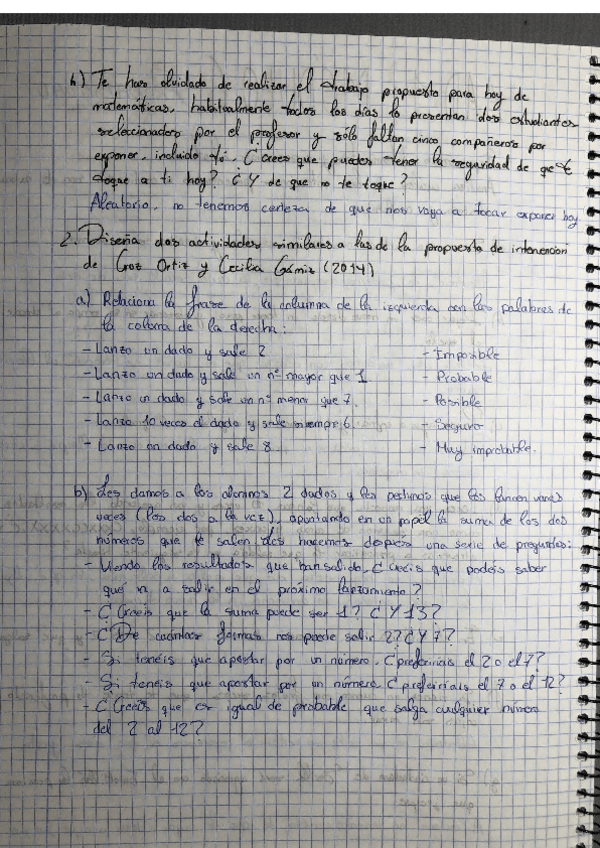 h) Te has olvidado de realizar el trabajo propuesto para hoy de
matemáticas, habitualmente todos los días lo presentan dos estudiantes
seleccionados por el profesor y sólo faltan cinco compañeros por
exponer, incluido tú. ¿Crees que puedes tener la seguridad de que te
toque a ti hoy? ¿Y de que no te toque?
Aleatorio, no tenemos certeza de que nos vaya a tocar exponer hoy
2. Diseña dos actividades similares a las de la propuesta de intervención
de Ortiz y Cecilia Gámiz (2014)
a) Relaciona la frase de la columna de la izquierda con las palabras de
la colúna de la derecha:
- Lanzo un dado y sale 2 - Imposible
- Lanzo un dado y sale un nº mayor que 1 - Probable
- Lanzo un dado y sale un nº menor que 7. - Posible
- Lanzo 10 veces el dado y sale siempre 6. - Seguro
- Lanzo un dado y sale 8 - Muy improbable.
b) Les damos a los alumnos 2 dados y les pedimos que los lancen varias
veces (los dos a la vez), apuntando en un papel la suma de los dos
números que te salen, les hacemos después una serie de preguntas:
- Viendo los resultados que han salido, ¿Creéis que podéis saber
qué va a salir en el próximo lanzamiento?
- ¿Creéis que la suma puede ser 1? ¿Y 13?
- ¿De cuántas formas nos puede salir 2? ¿Y 7?
- Si tenéis que apostar por un número, ¿preferiríais el 2 o el 7?
- Si tenéis que apostar por un número ¿preferiríais el 7 o el 12?
- ¿Creéis que es igual de probable que salga cualquier número
del 2 al 12?